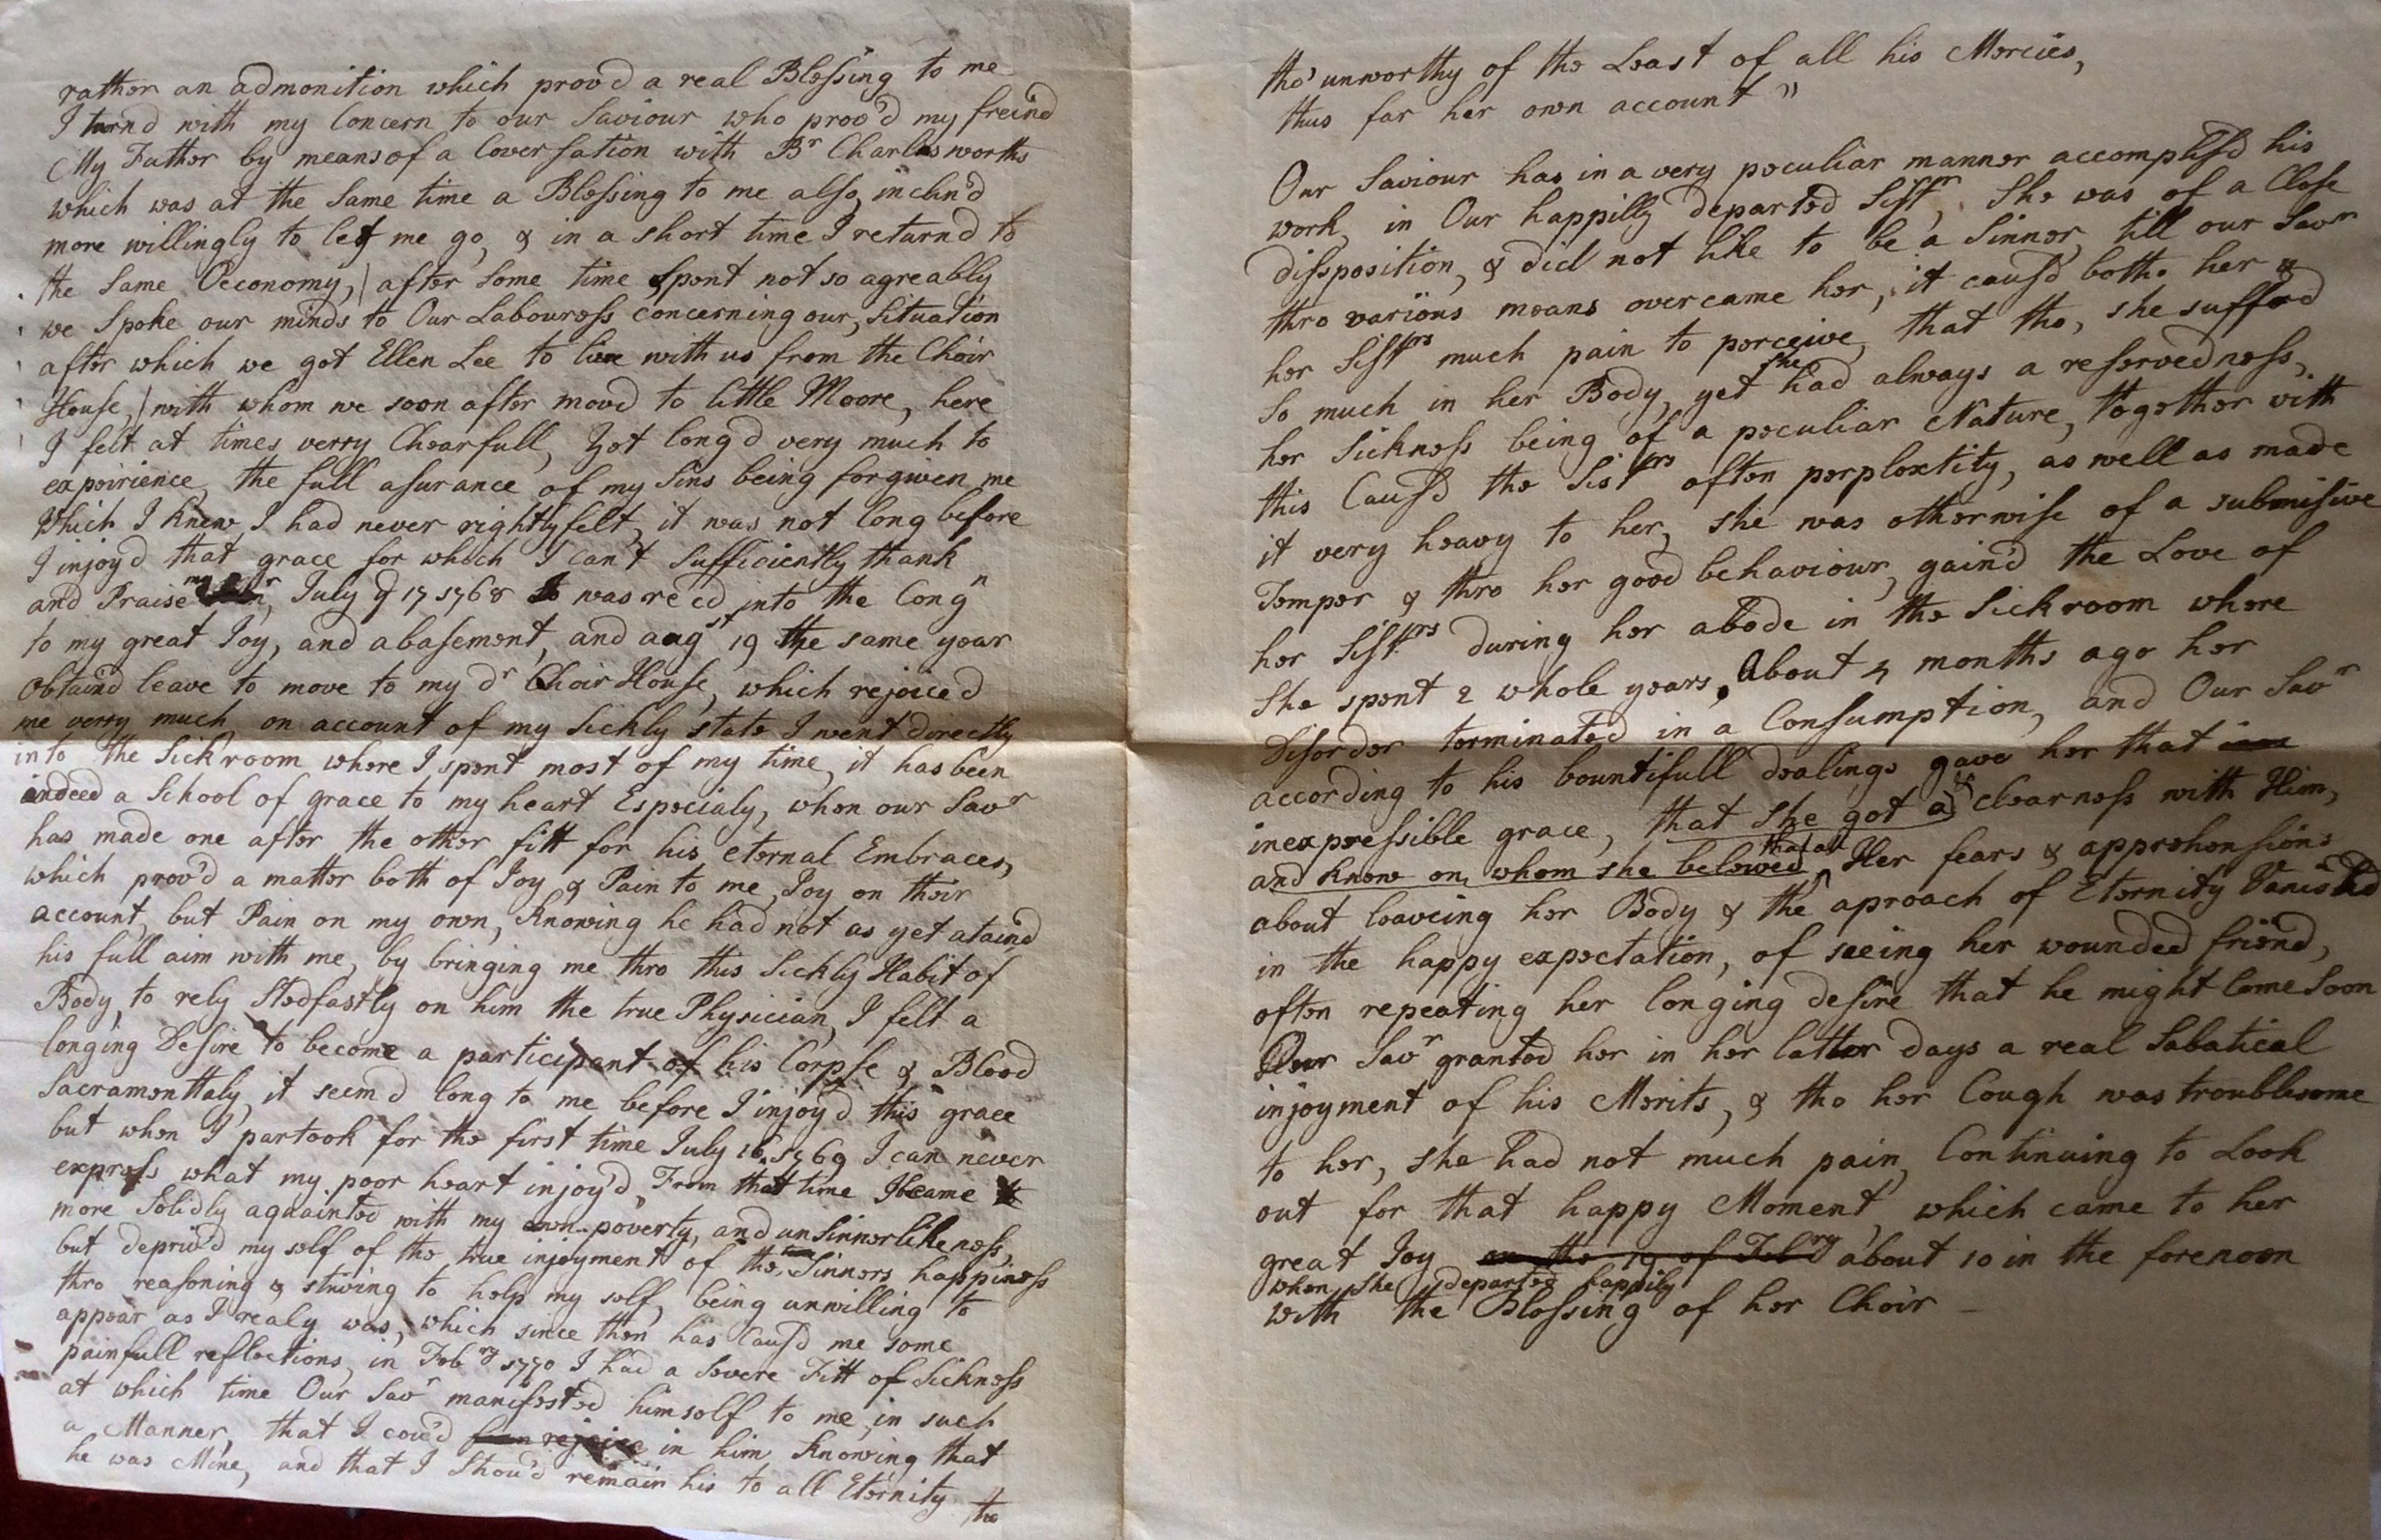 rather an admonition which prov'd a real Blessing to me
I turnd with my Concern to our Saviour who prov'd my freind
My Father by means of a Coversation with Br Charlesworths
which was at the same time a Blessing to me also, inclin'd
more willingly to let me go, & in a short time I return'd to
the same Oeconomy, after some time spent not so agreably
we spoke our minds to Our Labouress concerning our Situation
after which we got Ellen Lee to live with us from the Choir
House, with whom we soon after mov'd to little Moore, here
I felt at times verry Chearfull, Yet long'd very much to
expirience the full asurance of my Sins being forgiven me
Which I knew I had never rightly felt, it was not long before
I injoy'd that grace for which I can't sufficiently thank
and Praise my July 17 1768 I was recd into the Congn
to my great Joy, and abasement, and augst 19 the same year
Obtaind leave to move to my dr Choir House, which rejoiced
me verry much on account of my Sickly state I went directly
into the Sick room where I spent most of my time, it has been
indeed a School of grace to my heart Especialy, when our Savr
has made one after the other fitt for his eternal Embraces,
which prov'd a matter both of Joy & Pain to me, Joy on their
account, but Pain on my own, Knowing he had not as yet ataind
his full aim with me, by bringing me thro this Sickly Habit of
Body, to rely Stedfastly on him the true Physician, I felt a
longing Desire to become a participant of his Corpse & Blood
Sacramenttaly, it seem'd long to me before I injoy'd this grace
but when I partook for the first time July 16. 1769 I can never
express what my poor heart injoy'd, From that time I became
more Solidly aquainted with my own poverty, and unSinnerlikeness,
but depriv'd my self of the true injoyment of the Sinners happiness
thro reasoning & striving to help my self, being unwilling to
appear as I realy was, which since then has Caus'd me some
painfull reflections, in Febry 1770 I had a Severe Fitt of Sickness
at which time Our Savr manifested himself to me, in such
a Manner, that I cou'd rejoice in him, Knowing that
he was Mine, and that I Shou'd remain his to all Eternity
tho
tho' unworthy of the Least of all his Mercies,
thus far her own account "
Our Saviour has in a very peculiar manner accomplish'd his
work, in Our happilly departed Sistr, She was of a Close
dissposition, & did not like to be a Sinner, till our Savr
thro various means overcame her, it caus'd both her &
her Sistrs much pain to perceive, that tho, she sufferd
so much in her Body, yet she had always a reservedness,
her Sickness being of a peculiar Nature, together with
this Caus'd the Sistrs often perplextity, as well as made
it very heavy to her, she was otherwise of a submisive
Temper & thro her good behaviour, gain'd the Love of
her Sistrs during her abode in the Sick room where
She spent 2 whole years, About 4 months ago her
Disorder terminated in a Consumption, and Our Savr
according to his bountifull dealings gave her that
inexpressible grace, that she got a clearness with Him,
and know on, whom she beleived, that all Her fears & apprehensions
about leaveing her Body & the aproach of Eternity Vanishd
in the happy expectation, of seeing her wounded friend,
often repeating her longing desire that he might Come Soon
Our Savr granted her in her latter days a real Sabatical
injoyment of his Merits, & tho her Cough was troublesome
to her, she had not much pain, Continuing to Look
out for that happy Moment, which came to her
great Joy on the 19 of Febry about 10 in the forenoon
when she departed happily
with the Blessing of her Choir –